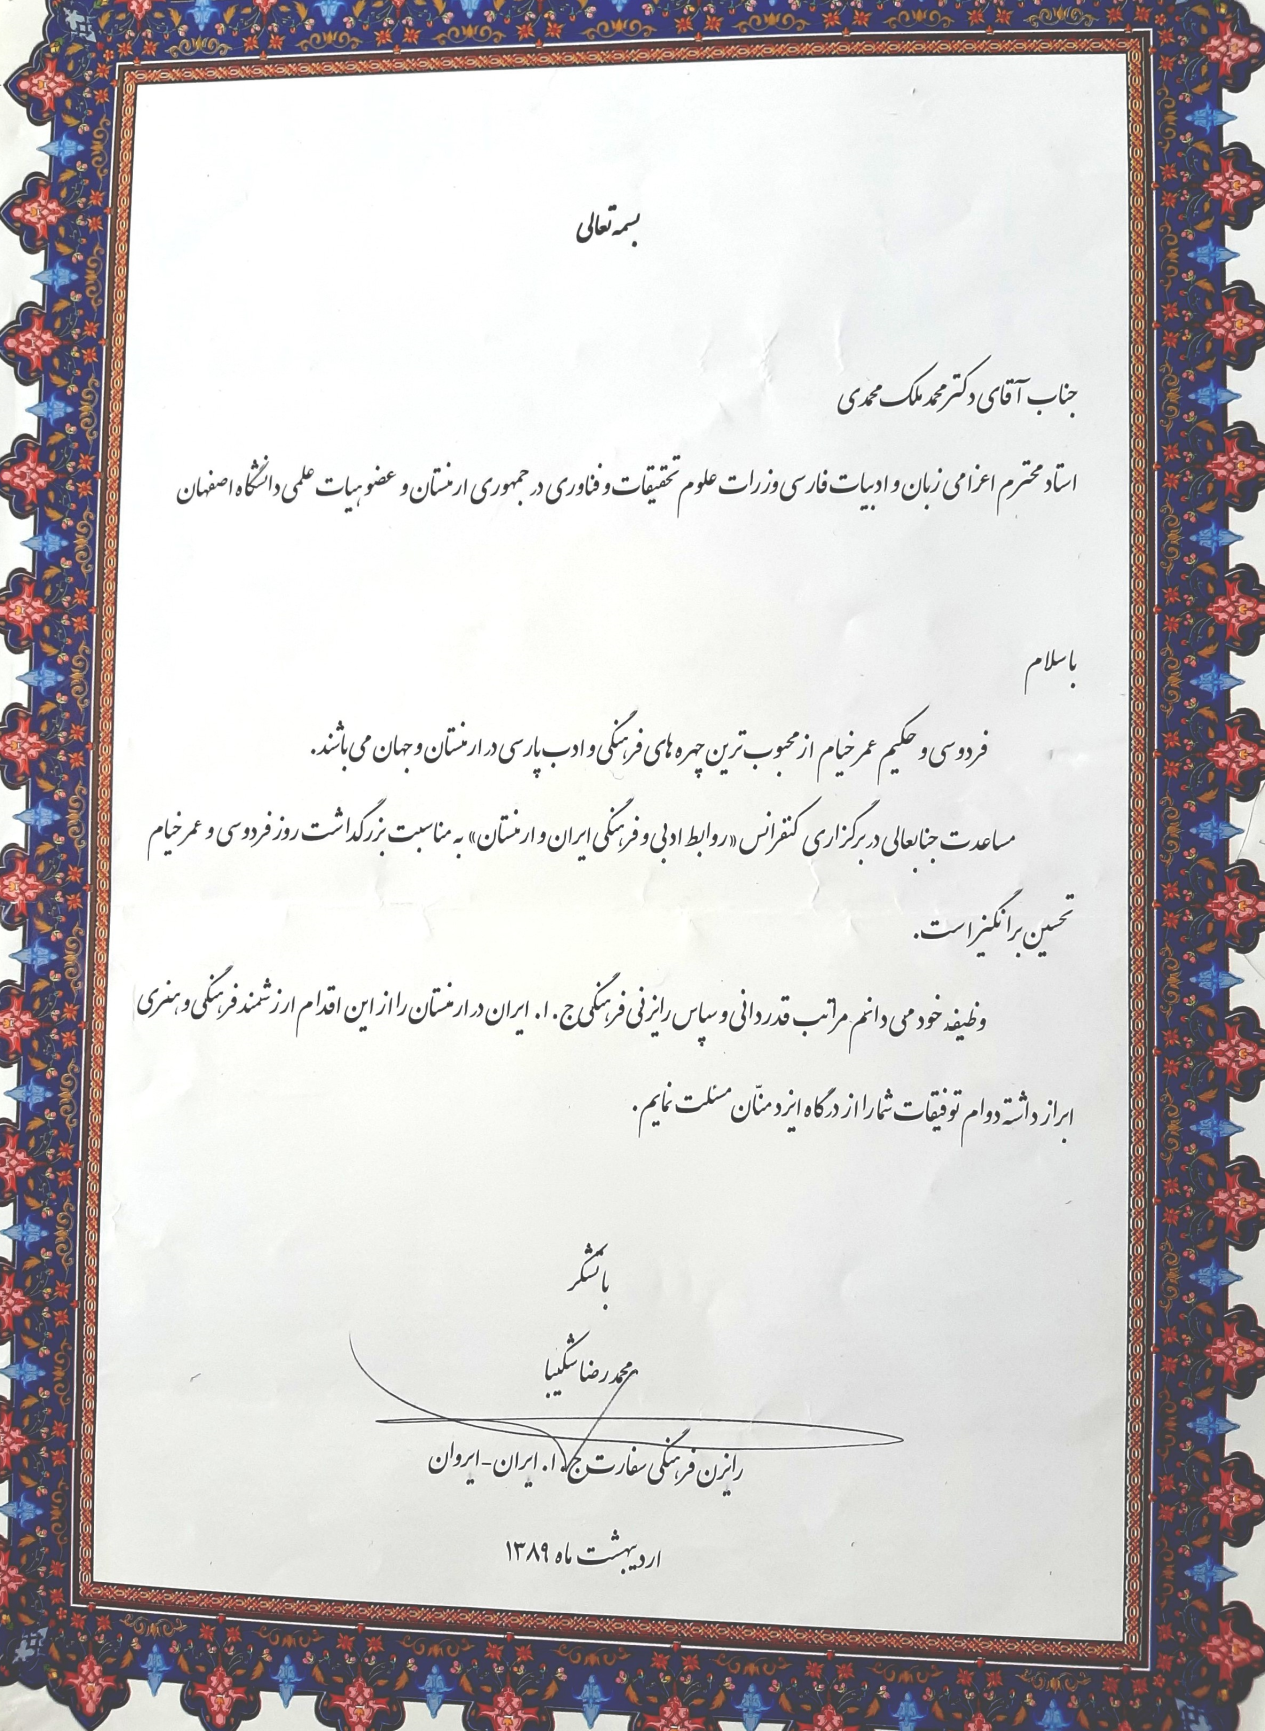 بسمه تعالی
جناب آقای دکتر محمد ملک محمدی
استاد محترم اعزامی زبان و ادبیات فارسی وزرات علوم تحقیقات و فناوری در جمهوری ارمنستان و عضو هیات علمی دانشگاه اصفهان
با سلام
فردوسی و حکیم عمر خیام از محبوب ترین چهره های فرهنگی و ادب پارسی در ارمنستان و جهان می باشند.
مساعدت جنابعالی در برگزاری کنفرانس «روابط ادبی و فرهنگی ایران و ارمنستان» به مناسبت بزرگداشت روز فردوسی و عمر خیام
تحسین برانگیز است.
وظیفه خود می دانم مراتب قدردانی و سپاس رایزنی فرهنگی ج.ا. ایران در ارمنستان را از این اقدام ارزشمند فرهنگی و هنری
ابراز داشته دوام توفیقات شما را از درگاه ایزد منّان مسئلت نمایم.
با تشکر
محمد رضا شکیبا
رایزن فرهنگی سفارت ج.ا. ایران-ایروان
اردیبهشت ماه ۱۳۸۹